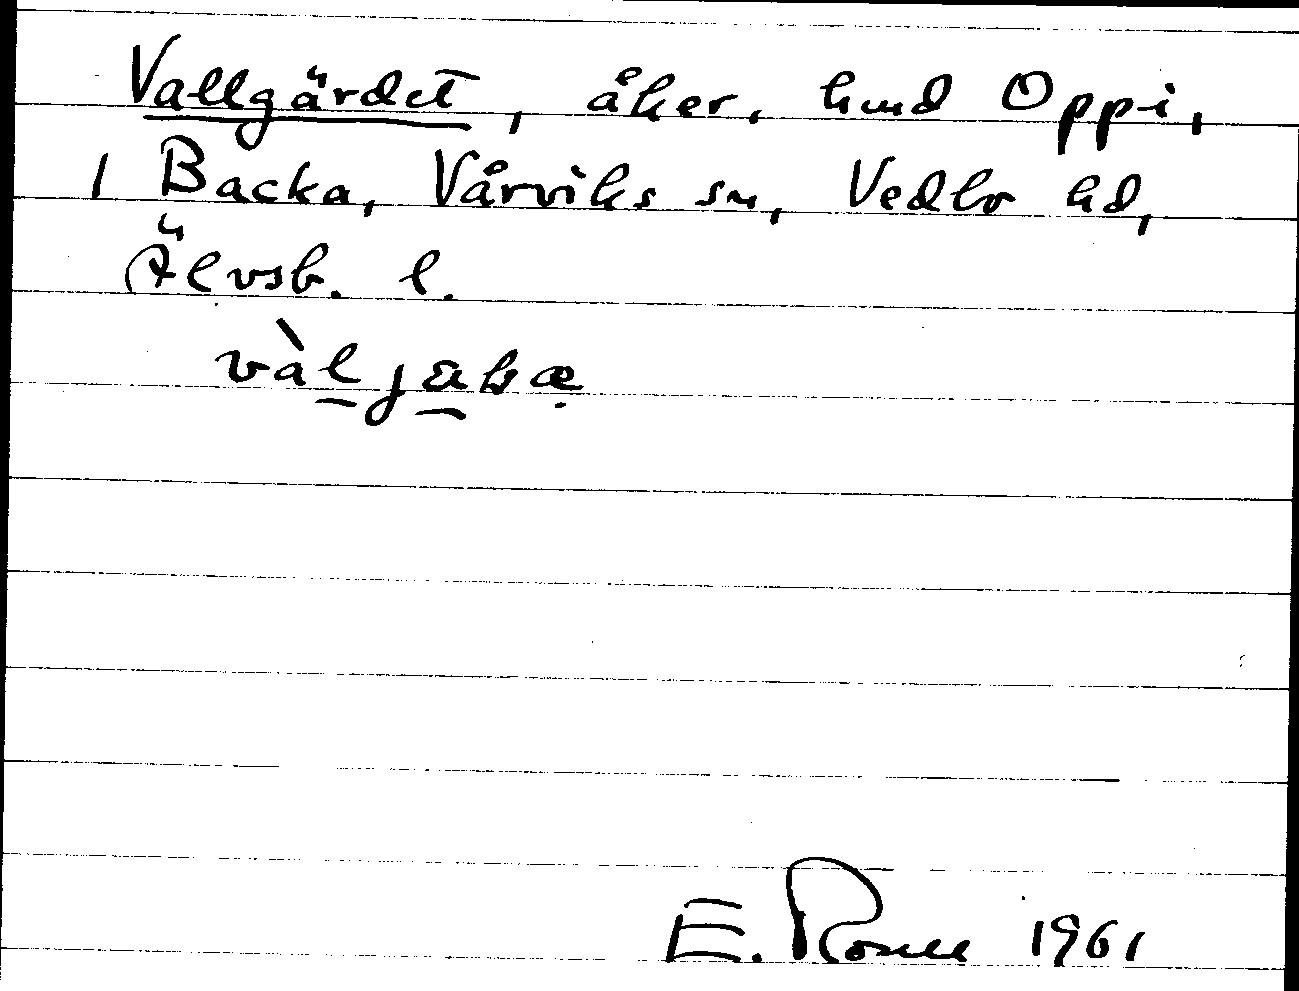 Vallgärdet, åker, hmd Oppi,
1 Backa, Vårviks sn, Vedbo hd,
Älvsb. l.
E. Rosell 1961